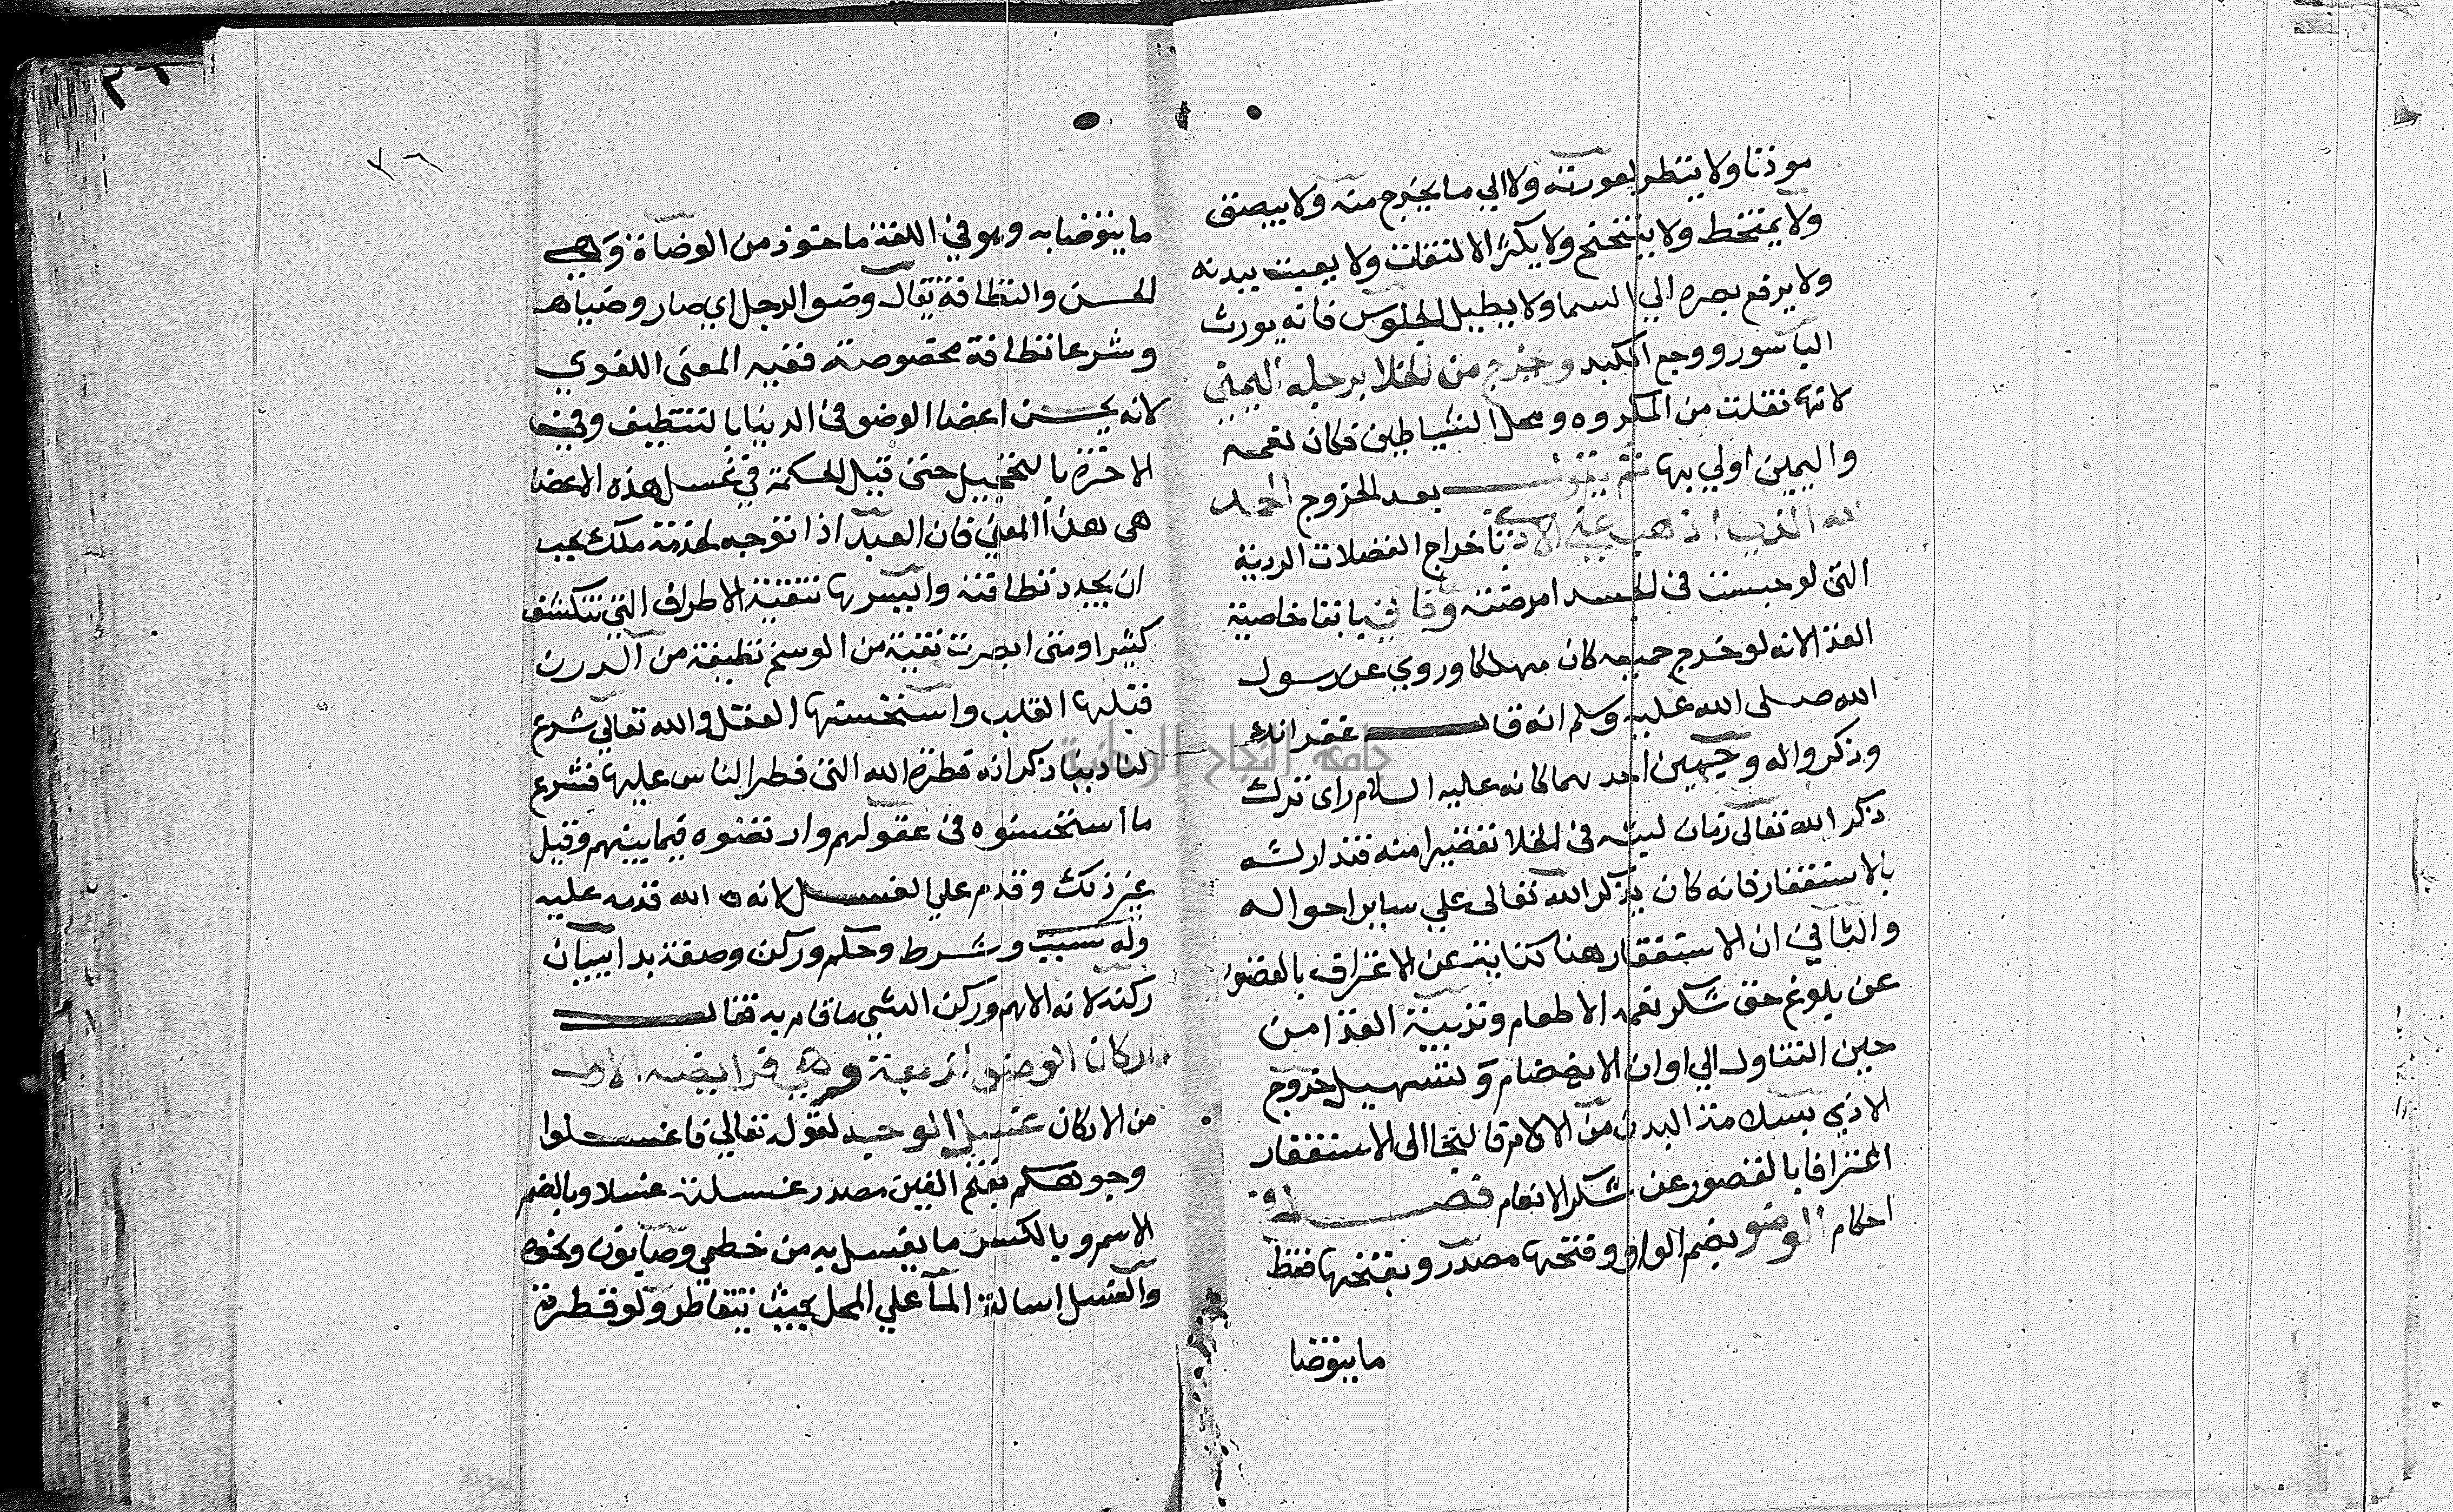 موذنا ولا ينظر لعورته ولا الي ما يخرج منه ولا يبصق
ولا يمتخط ولا يتنحنح ولا يكثر الالتفات ولا يعبث ببدنه
ولا يرفع بصره الي السما ولا يطيل الجلوس فانه يورث
الباسور ووجع الكبد وخرج من الخلا برجله اليمني
لانها نقلت من المكروه ومحل الشياطين فكان نعمة
واليمين اولي بها ثم يقول بعد الخروج الحمد
لله الذي اذهب عني الاذي باخراج الفضلات الردية
التي لو حبست في الجسد امرضته وعافاني بابقا خاصية
الغذا لانه لو خرج جميعه كان مهلكا وروي عن رسول
الله صلي الله عليه وسلم انه قال غفرانك
وذكروا له وجهين احدهما كانه عليه السلام راي ترك
ذكر الله تعالي زمان لبثه في الخلا تقصيرا منه فتداركه
بالاستغفار فانه كان يذكر الله تعالي علي ساير احواله
والثاني ان الاستغفار هنا كناية عن الاعتراف بالقصور
عن بلوغ حق شكر نعمة الاطعام وتربية الغذا من
حين التناول الي اوان الانهضام وتسهيل خروج
الاذي لسلامة البدن من الالام فالتجا الي الاستغفار
اعترافا بالقصور عن شكر الانعام فصل في
احكام الوضو بضم الواو وفتحها مصدر وبفتحها فقط
ما يتوضا
٧٦
ما يتوضا به وهو في اللغة ماخوذ من الوضاة وهي
الحسن والنظافة يقال وضو الرجل اي صار وضيا
وشرعا نظافة مخصوصة ففيه المعني اللغوي
لانه يحسن اعضا الوضو في الدنيا بالتنظيف وفي
الاخرة بالتحجيل حتي قيل الحكمة في غسل هذه الاعضا
هي هذا المعني فان العبد اذا توجه لخدمة ملك يجب
ان يجدد نظافته وايسرها تنقية الاطراف التي تنكشف
كثيرا ومتي ابصرت نقية من الوسخ نظيفة من الدرن
قبلها القلب واستحسنها العقل والله تعالي شرع
لنا دينا ذكر انه فطرة الله التي فطر الناس عليها فشرع
ما استحسنوه في عقولهم وارتضوه فيما بينهم وقيل
غير ذلك وقدم علي الغسل لانه الله قدمه عليه
وله سبب وشرط وحكم وركن وصفة بدا ببيان
ركنه لانه الاهم وركن الشي ما قام به فقال
اركان الوضو اربعة وهي فرايضه الاول
من الاركان غسل الوجه لقوله تعالي فاغسلوا
وجوهكم بفتح الغين مصدر غسلته غسلا وبالضم
الاسم وبالكسر ما يغسل به من خطمي وصابون ونحوه
والغسل اسالة الماء علي المحل بحيث يتقاطر ولو قطرة